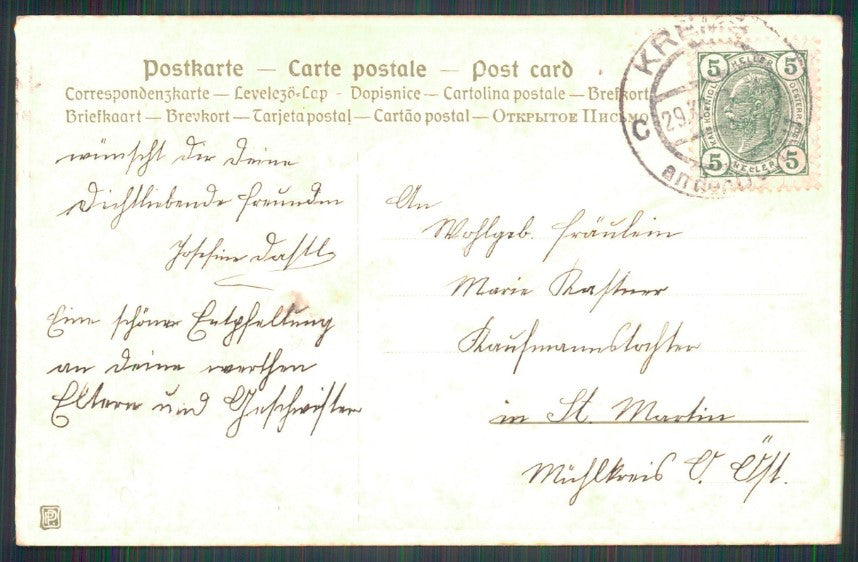 Postkarte — Carte postale — Post card
Correspondenzkarte — Levelező-Lap - Dopisnice — Cartolina postale — Brefkort
Briefkaart — Brevkort — Tarjeta postal — Cartão postal — Открытое Письмо
KREMS
C
29.X
an der
5 HELLER 5
5 HELLER 5
wünscht dir deine
dichliebende Freundin
Josefine Dastl
Eine schöne Entpfellung
an deine werthen
Eltern und Geschwister
An
Wohlgeb. Fräulein
Marie Kastner
Kaufmannstochter
in St. Martin
Mühlkreis O. Öst.